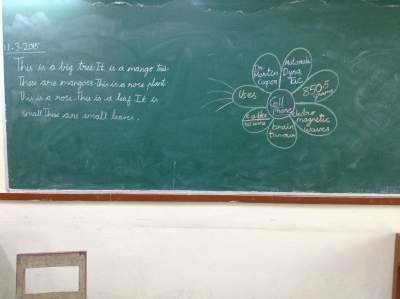 11-3-2015
This is a big tree. It is a mango tree.
These are mangoes. This is a rose plant.
This is a rose. This is a leaf. It is
small. These are small leaves.
Dr.
Martin
Cooper
Motorola
Dyna
TAC
850.5
grams
Uses
Cell
Phone
Electro
magnetic
waves
brain
tumour